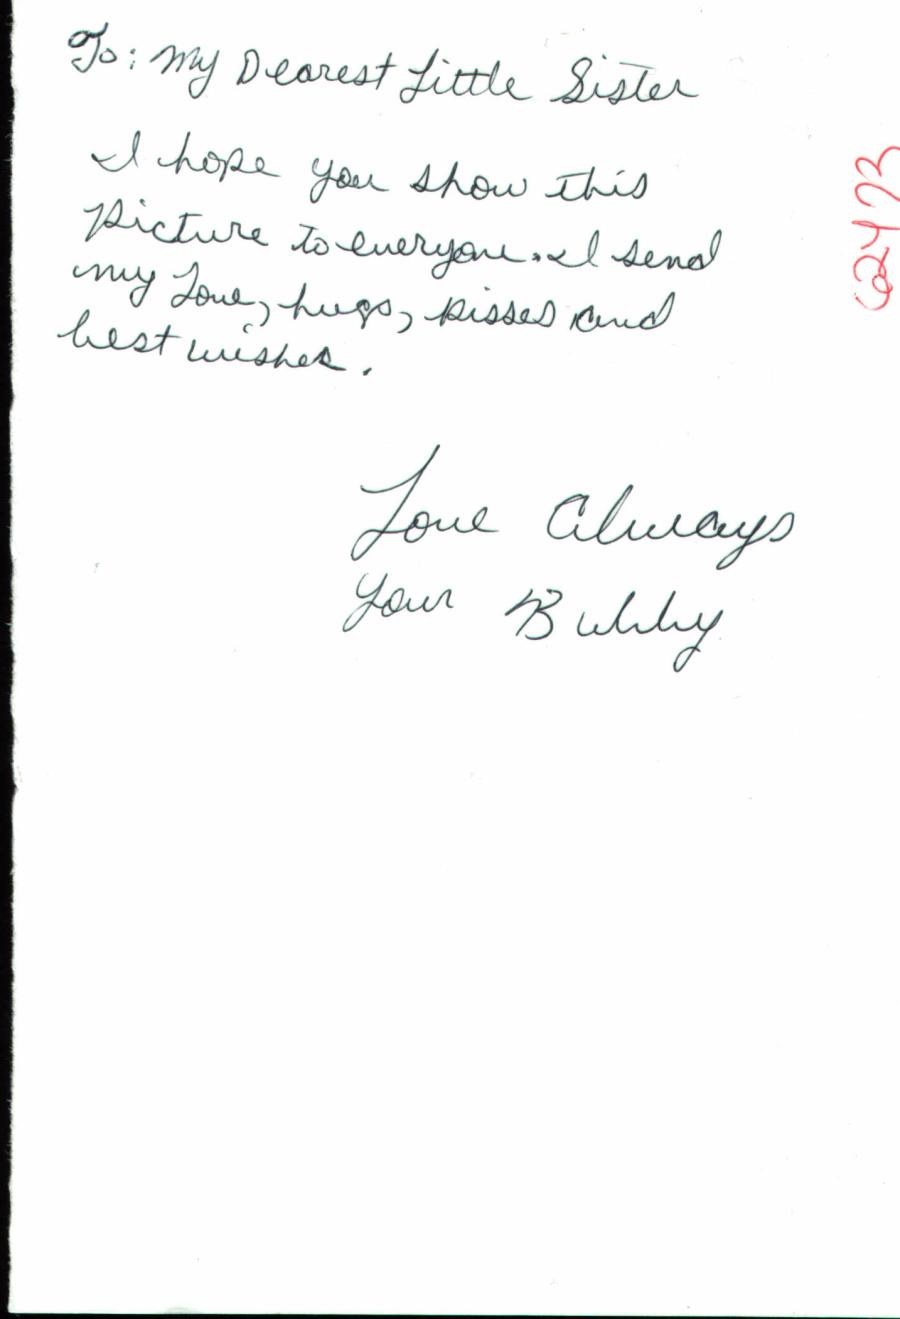 To: My Dearest Little Sister
I hope you show this
picture to everyone. I send
my Love, hugs, kisses and
best wishes.
Love Always
Your Bubby